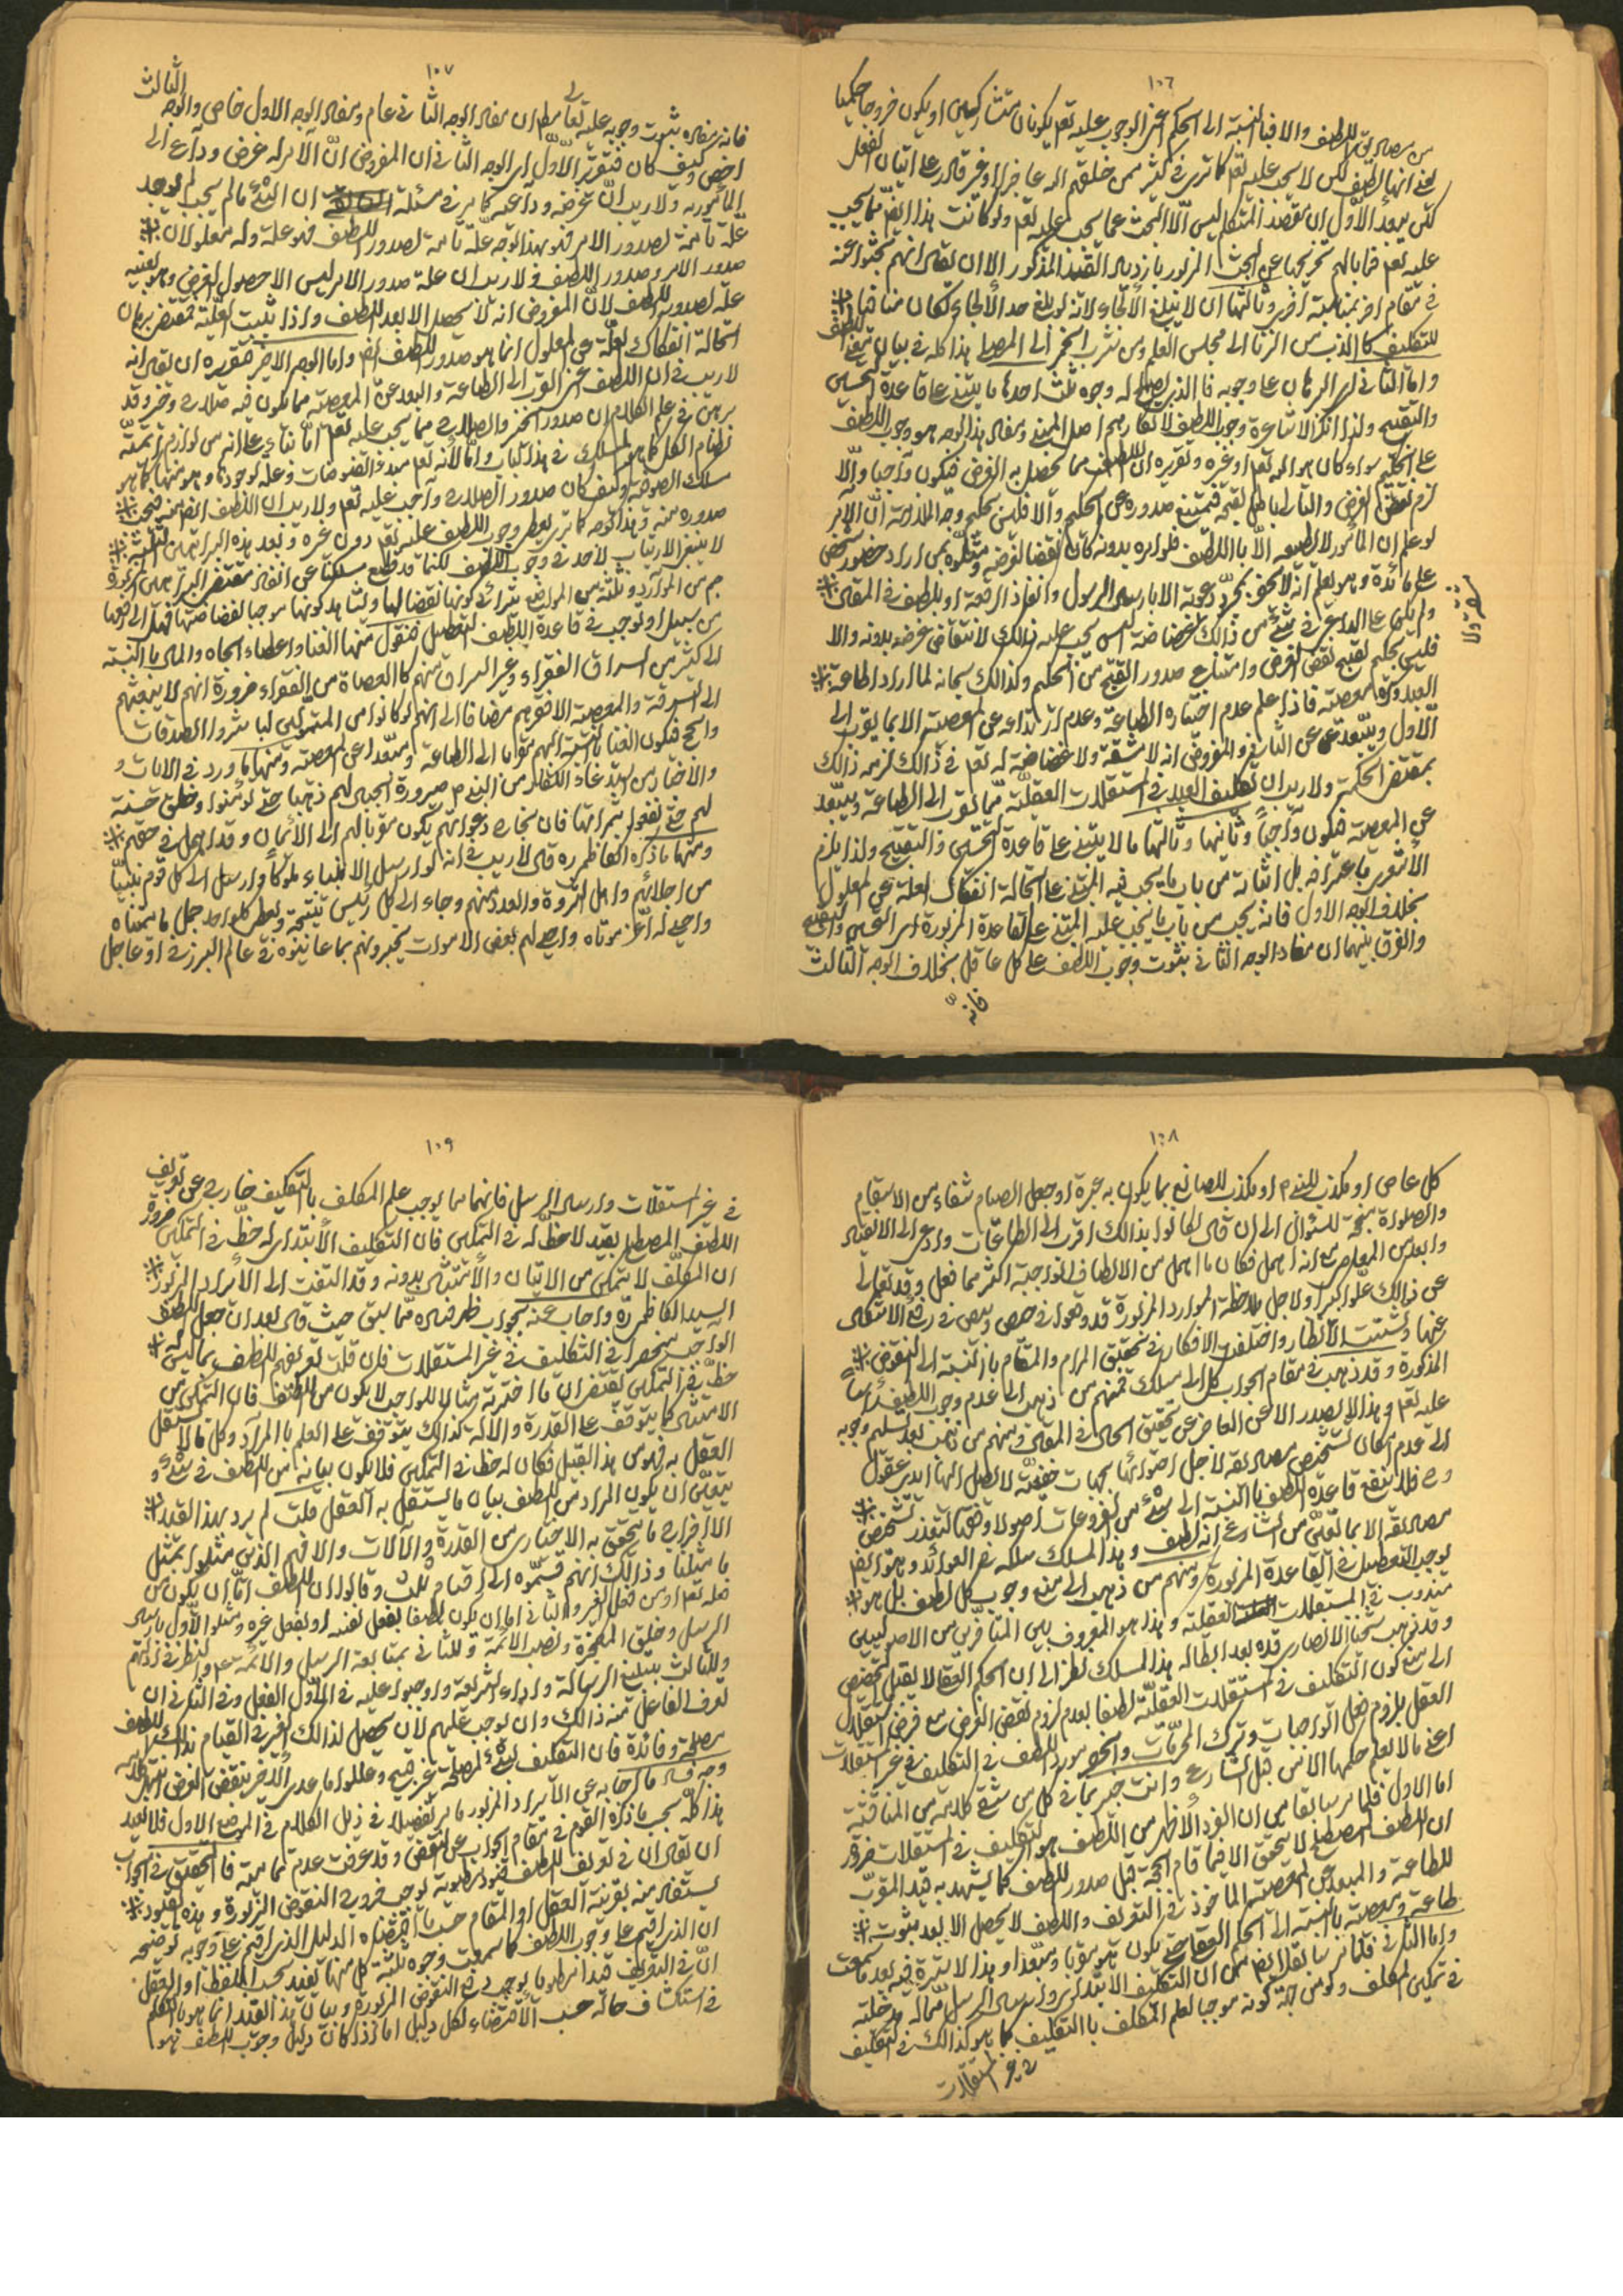 ١٠٦
من مصاديق اللطف والا فبالنسبة الى الحكم اعنى الوجوب عليه تعم يكونان متشاركين او يكون خروجا حكميا
يعنى انها لطف لكن لا يجب عليه تعم كما ترى فى كثير ممن خلقهم الله عاجزا او غير قادر على اتيان الفعل
لكن يبعد الأول ان مقصد المتكلم ليس الا البحث عما يجب عليه تعم ولو كانت هذا ايضا مما يجب
عليه تعم فما بالهم تخريجها عن البحث المزبور بازدياد القيد المذكور الا ان يقال انهم بحثوا عنه
فى مقام اخر بمناسبة اخرى وثالثها ان لا يبلغ الألجاء لانه لو بلغ حد الألجاء لكان منافيا
للتكليف كالذب من الزنا الى مجلس العلم ومن شرب الخمر الى المصلى هذا كله فى بيان معنى اللطف
واما الثانى اى البرهان على وجوبه فالذى يصلح له وجوه ثلث احدها ما يبتنى على قاعدة التحسين
والتقبيح ولذا انكر الاشاعرة وجوب اللطف لانكارهم اصل المبنى ومفاد هذا الوجه هو وجوب اللطف
على الحكيم سواء كان هو الله تعم او غيره وتقريره ان اللطف مما يحصل به الغرض فيكون واجبا والا
لزم نقض الغرض والتالى باطل لقبحه فيمتنع صدوره عن الحكيم والا فليس بحكيم وجه الملازمة ان الآمر
لو علم ان المأمور لا يطيعه الا باللطف فلو امره بدونه كان نقضا لغرضه ومثلوه بمن اراد حضور شخص
على مائدة وهو يعلم انه لا يحضر بمجرد دعوته الا بارسال الرسول وانفاذ الرقعة او بلطف فى المقال
ولم يكن على الداعى فى شئ من ذالك غضاضة اليس يجب عليه ذالك لانتقاض غرضه بدونه والا
مشقة ولا
فليس بحكيم لقبح نقض الغرض وامتناع صدور القبيح من الحكيم وكذالك سبحانه لما اراد اطاعة
العبد وكره معصيته فاذا علم عدم اختياره الطاعة وعدم ارتداعه عن المعصية الا بما يقرب الى
الأول ويبعد عن الثانى والمفروض انه لا مشقة ولا غضاضة له تعم فى ذالك لزمه ذالك
بمقتضى الحكمة ولا ريب ان تكليف العبد فى استقلالات العقلية مما يقرب الى الطاعة ويبعد
عن المعصية فيكون واجبا وثانيها وثالثها ما لا يبتنى على قاعدة التحسين والتقبيح ولذا يلزم
الأشعرى باعترافه بل اثباته من باب ما يجب فيه المبتنى على استحالة انفكاك العلة عن المعلول
بخلاف الوجه الاول فانه يجب من باب ما يجب عليه المبتنى على القاعدة المزبورة اى التحسين والتقبيح
والفرق بينهما ان مفاد الوجه الثانى ثبوت وجوب اللطف على كل عاقل بخلاف الوجه الثالث
فانه
١٠٧
فانه مفاده ثبوت وجوبه عليه تعالى فظهر ان مفاد الوجه الثانى عام ومفاد الوجه الاول خاص والوجه الثالث
اخص وكيف كان فتقرير الأول اى الوجه الثانى ان المفروض ان الآمر له غرض وداع الى
المأمور به ولا ريب ان غرضه وداعيه كما مر فى مسئلة ان الشئ مالم يجب لم يوجد
علة تامة لصدور الامر فهو بهذا الوجه علة تامة لصدور اللطف فهو علة وله معلولان
صدور الامر وصدور اللطف ولا ريب ان علة صدور الامر ليس الا حصول الغرض وهو بعينه
علة لصدور اللطف لان المفروض انه لا يحصل الا بعد اللطف واذا ثبت العلية فمقتضى برهان
استحالة انفكاك العلة عن المعلول انما هو صدور اللطف ايضا واما الوجه الاخير فتقريره ان يقال انه
لا ريب فى ان اللطف اعنى القرب الى الطاعة والبعد عن المعصية مما يكون فيه صلاح وخير وقد
برهن فى علم الكلام ان صدور الخير والصلاح مما يجب عليه تعم اما بناء على انه من لوازم تتمة
نظام الكل كما هو المسلك فى هذا الباب واما لأنه تعم مبدء الفيوضات وعلة لوجودها وهو منها كما هو
مسلك الصوفية وكيف كان صدور الصلاح واجب عليه تعم ولا ريب ان اللطف ايضا منه فيجب
صدوره منه وبهذا الوجه كما ترى يعطى وجوب اللطف عليه تعم دون غيره وبعد هذه البراهين الثلثة
لا ينبغى الارتياب لأحد فى وجوب اللطف لكنما قد قطع سلكنا عن انفاذ مقتضى البراهين المزبورة
جم من الموارد وثلثة من المواضع يترائى كونها نقضا لها ولتباعد كونها موجبا لفضاحتها فهل الى رفعها
من سبيل او توجب فى قاعدة اللطف التعطيل فنقول منها الغنا واعطاء الجاه والمال بالنسبة
الى كثير من السراق الفقراء وغير السراق منهم كالعصاة من الفقراء ضرورة انهم لا يبعثهم
الى السرقة والمعصية الا فقرهم مضافا الى انهم لو كانوا من المتمولين لباشروا الصدقات
والحج فيكون الغنا بالنسبة اليهم مقربا الى الطاعة ومبعدا عن المعصية ومنها ما ورد فى الآيات و
والاخبار من استدعاء الكفار من النبى ص صيرورة الجبال لهم ذهبا حتى يؤمنوا وخلق جنة
لهم حتى يفعلوا ثمراتها فان انجاح دعواتهم يكون مقربا لهم الى الأيمان وقد اهمل فى حقهم
ومنها ما ذكره الكاظمى ره قال لا ريب فى انه لو ارسل الانبياء ملوكا وارسل الى كل قوم نبيا
من اجلائهم واهل الثروة والعدد منهم وجاء الى كل رئيس بنتيجة واعطى كلواحد جمل ما يتمناه
واحيى له اعز موتاه واحيى لهم بعض الاموات يخبرونهم بما عاينوه فى عالم البرزخ او عاجل
١٠٨
كل عاص او مكذب للنبى ص او مكذب للصانع بما يكون به عبرة او جعل الصيام شفاء من الاسقام
والصلوة منجحة للسؤال الى ان قال لكانوا بذالك اقرب الى الطاعات وادعى الى الانقياد
وابعد من المعاصى مع انه اهمل فكان ما اهمل من الالطاف الواجبة اكثر مما فعل وقد تعالى
عن ذالك علوا كبيرا ولاجل ملاحظة الموارد المزبورة قد وقعوا فى حيص وبيص فى رفع الاشكال
عنها وتشتت الأنظار واختلفت الافكار فى تحقيق المرام والمقام بالنسبة الى النقوض
المذكورة وقد ذهب فى مقام الجواب كل الى مسلك فمنهم من ذهب الى عدم وجوب اللطف رأسا
عليه تعم وهذا لا يصدر الا عن العاجز عن تحقيق الحال فى المقال ومنهم من ذهب بعد تسليم وجوبه
الى عدم امكان تشخيص مصاديقه لاجل احتوائها بجهات خفية لا يصل اليها ايدى عقول
وح فلا ينفع قاعدة اللطف بالنسبة الى شئ من الفروعات اصولا وفقها لتعذر تشخيص
مصاديقه الا بما تعلق من الشارع انه لطف وهذا المسلك سلكه فى العوائد وهو ايضا
يوجب التعطيل فى القاعدة المزبورة ومنهم من ذهب الى منع وجوب كل لطف بل هو
مندوب فى المستقلات العقلية وهذا هو المعروف بين المتأخرين من الاصوليين
وقد ذهب شيخنا الانصارى قده بعد ابطاله هذا المسلك نظرا الى ان الحكم العقلى لا يقبل التخصيص
الى منع كون التكليف فى المستقلات العقلية لطفا بعدم لزوم نقض الغرض مع فرض استقلال
العقل بلزوم فعل الواجبات وترك المحرمات وانحصر مورد اللطف فى التكليف فى غير المستقلات
اعنى ما لا يعلم حكمها الا من قبل الشارع وانت خبير بما فى كل من شقى كلامه من المناقشة
اما الاول فلما مر سابقا من ان الفرد الأظهر من اللطف هو التكليف فى المستقلات ضرورة
ان اللطف المصطلح لا يتحقق الا فيما قام الحجة قبل صدور اللطف كما يشهد به قيد المقرب
للطاعة والمبعد عن المعصية المأخوذ فى التعريف واللطف لا يحصل الا بعد ثبوت
طاعة ومعصية بالنسبة الى الحكم العقلى حتى يكون هو مقربا ومبعدا وهذا لا سترة فيه بعد ما سمعت
واما الثانى فلما مر سابقا ايضا من ان التكليف الابتدائى وارسال الرسل مما له مدخلية
فى تمكين المكلف ولو من جهة كونه موجبا لعلم المكلف بالتكليف كما هو كذالك فى التكليف
فى غير المستقلات
١٠٩
فى غير المستقلات وارسال الرسل فانهما مما يوجب علم المكلف بالتكليف خارج عن تعريف
اللطف المصطلح بقيد لاحظ له فى التمكين فان التكليف الأبتدائى له حظ فى التمكين ضرورة
ان المكلف لا يتمكن من الاتيان والأمتثال بدونه وقد التفت الى الأيراد المزبور
السيد الكاظمى ره واجاب عنه بجواب ظهر فساده مما سبق حيث قال بعد ان جعل اللطف
الواجب منحصرا فى التكليف فى غير المستقلات فان قلت تعريفهم اللطف بما ليس له
حظ فى التمكين يقتضى ان ما اخترته مثالا للواجب لا يكون من اللطف فان التمكين من
الامتثال كما يتوقف على القدرة والآلة كذالك يتوقف على العلم بالمراد وكل ما لا يستقل
العقل به فهو من هذا القبيل فكان له حظ فى التمكين فلا يكون بيانه من اللطف فى شئ و
يتعين ان يكون المراد من اللطف بيان ما يستقل به العقل قلت لم يرد بهذا القيد
الا اخراج ما يتحقق به الاختيار من القدرة والآلات والا فهم الذين مثلوا بمثل
ما مثلنا وذالك انهم قسموه الى اقسام ثلث وقالوا ان اللطف اما ان يكون من
فعله تعم او من فعل الغير والثانى اما ان يكون لطفا بفعل نفسه او بفعل غيره ومثلوا للأول بارسال
الرسل وخلق المعجزة ونصب الأئمة وللثانى بمتابعة الرسل والأئمة عم والنظر فى اقوالهم
وللثالث بتبليغ الرسالة واداء الشريعة واوجبوا عليه فى الأول الفعل وفى الثانى ان
يعرف الفاعل منه ذالك وان يوجب عليهم لأن يحصل لذالك الغير فى القيام بذالك
مصلحة وفائدة فان التكليف بشئ لمصلحة غير قبيح وعللوا ما عدى الأخير بنقض الغرض انتهى كلامه
وجه فساد ما اجاب به عن الأيراد المزبور ما مر تفصيلا فى ذيل الكلام فى الموضع الاول فلا نعيد
هذا كله بحسب ما ذكره القوم فى مقام الجواب عن النقض وقد عرفت عدم تمامية فالتحقيق فى الجواب
ان يقال ان فى تعريف اللطف قيود مطوية يوجب خروج النقوض المزبورة وهذه القيود
يستفاد منه بقرينة العقل او المقام حسب ما اقتضاه الدليل الذى اقيم على وجوبه توضيحه
ان الذى اقيم على وجوب اللطف كما سمعت وجوه ثلثة كل منها يفيد بحسب اللفظ او العقل
ان فى التعريف قيدا مطويا يوجب دفع النقوض المزبورة وبيان هذا القيد انما هو بالتكلم
فى استكشاف حاله حسب الأقتضاء لكل دليل اما اذا كان دليل وجوب اللطف هو